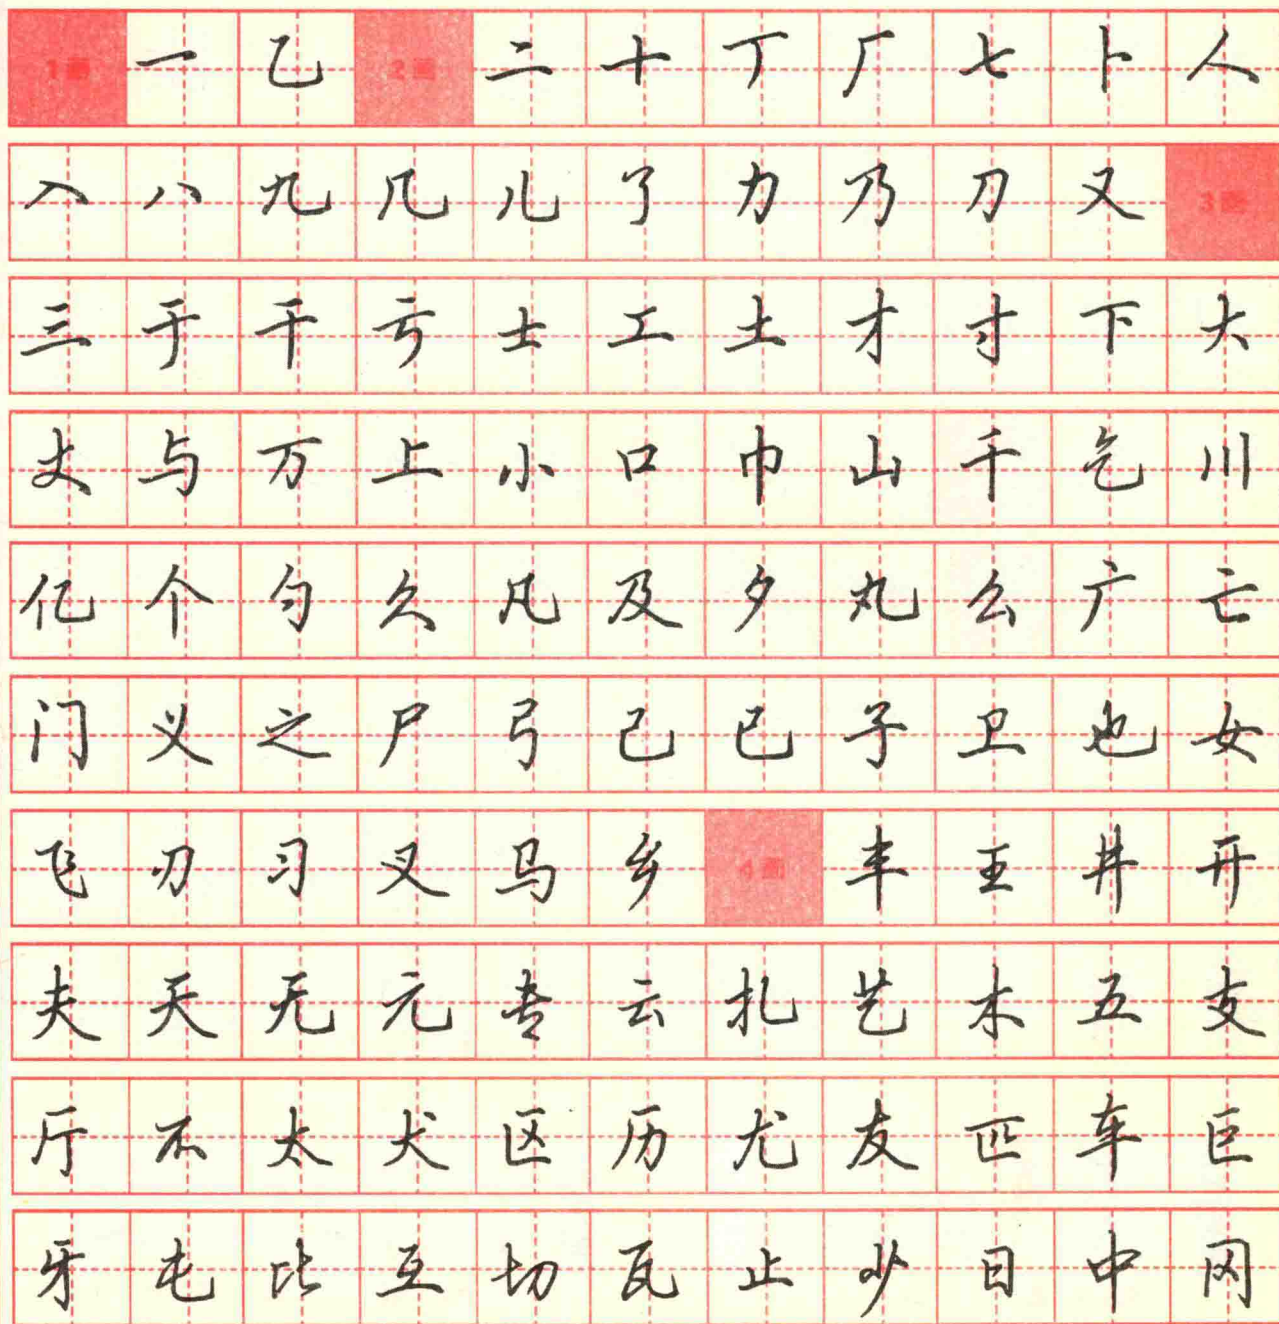 1画 一 乙 2画 二 十 丁 厂 七 卜 人
入 八 九 几 儿 了 力 乃 刀 又 3画
三 于 干 亏 士 工 土 才 寸 下 大
丈 与 万 上 小 口 巾 山 千 乞 川
亿 个 匀 久 凡 及 夕 丸 么 广 亡
门 义 之 尸 弓 己 已 子 卫 也 女
飞 刃 习 叉 马 乡 4画 丰 王 井 开
夫 天 无 元 专 云 扎 艺 木 五 支
厅 不 太 犬 区 历 尤 友 匹 车 巨
牙 屯 比 互 切 瓦 止 少 日 中 冈